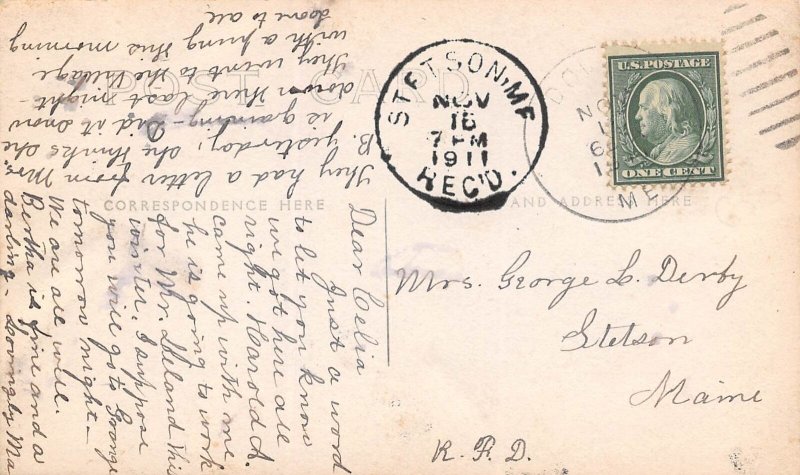 POST CARD
CORRESPONDENCE HERE
AND ADDRESS HERE
STETSON, ME
NOV
16
7 PM
1911
REC'D.
NO
ME
U.S. POSTAGE
ONE CENT
Mrs. George L. Derby
Stetson
Maine
R. F. D.
Dear Celia
Just a word
to let you know
we got here all
right. Harold A.
came up with me
he is going to work
for Mr. Leland this
winter. I suppose
you will go to Grange
tomorrow night -
We are all well.
Bertha is fine and a
darling - Lovingly Ma
They had a letter from Mrs.
B. yesterday; she thinks she
is gaining - Did it snow
down there last night -
They went to the village
with a pung this morning
love to all